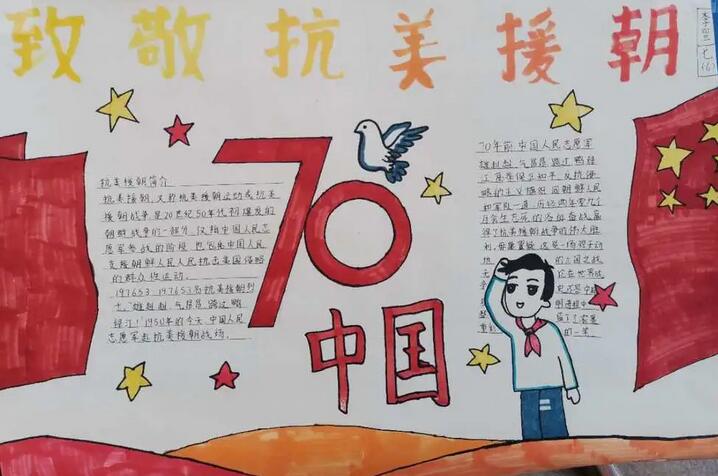 致敬抗美援朝
七(6)
70
中国
抗美援朝简介
抗美援朝,又称抗美援朝运动或抗美
援朝战争,是20世纪50年代初爆发的
朝鲜战争的一部分,仅指中国人民志
愿军参战的阶段,也包括中国人民
支援朝鲜人民人民抗击美国侵略
的群众性运动。
197653 197653
"雄赳赳,气昂昂,跨过鸭
绿江!"1950年的今天,中国人民
志愿军赴抗美援朝战场。
70年前,中国人民志愿军
雄赳赳,气昂昂,跨过鸭绿
江,高举保卫和平、反抗侵
略的正义旗帜,同朝鲜人民
和军队一道,历经两年零九个
月舍生忘死的浴血奋战,赢
得了抗美援朝战争的伟大胜
利,
立国之战
在世界战